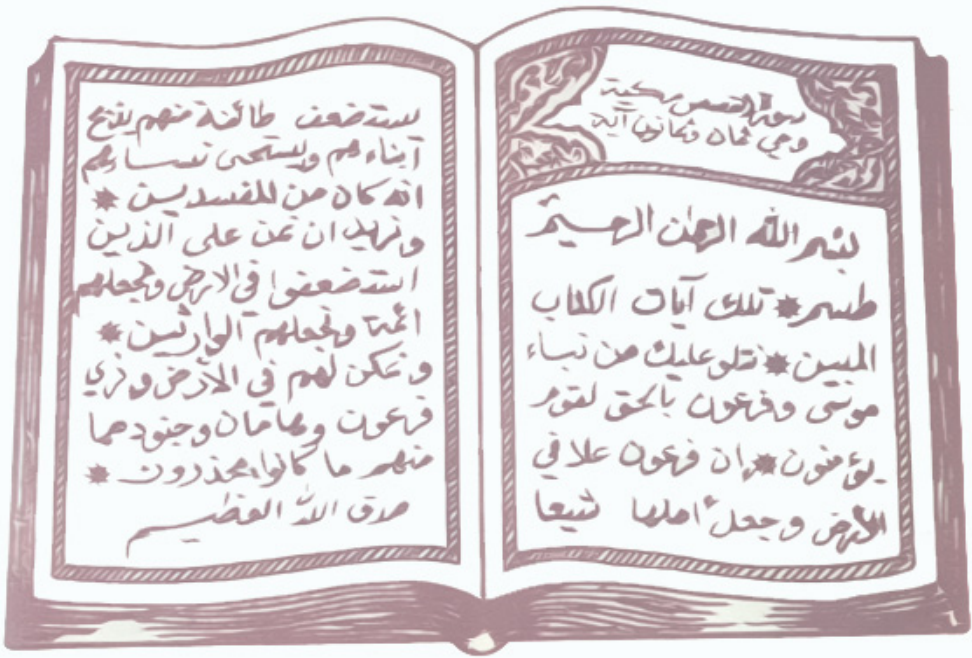 سورة القصص مكية
وهي ثمان وثمانون آية
بسم الله الرحمن الرحيم
طسم * تلك آيات الكتاب
المبين * نتلو عليك من نباء
موسى وفرعون بالحق لقوم
يؤمنون * إن فرعون علا في
الأرض وجعل أهلها شيعا
يستضعف طائفة منهم يذبح
أبناءهم ويستحى نساءهم
انه كان من المفسدين *
ونريد ان نمن على الذين
استضعفوا في الارض ونجعلهم
ائمة ونجعلهم الوارثين *
ونمكن لهم في الأرض ونري
فرعون وهامان وجنودهما
منهم ما كانوا يحذرون *
صدق الله العظيم